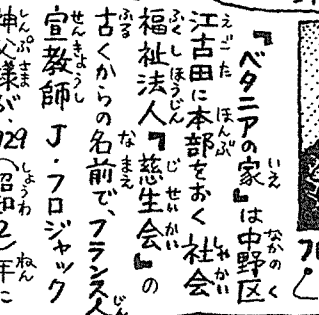 『ベタニアの家』は中野区
江古田に本部をおく社会
福祉法人『慈生会』の
古くからの名前で、フランス人
宣教師 J・フロジャック
神父様が、1929(昭和2)年に